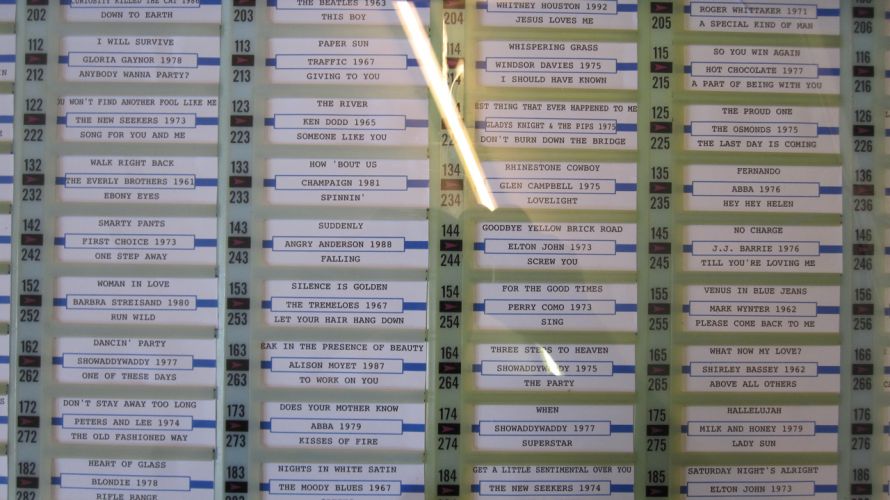 CURIOSITY KILLED THE CAT 1986
202
DOWN TO EARTH
THE BEATLES 1963
203
THIS BOY
WHITNEY HOUSTON 1992
204
JESUS LOVES ME
ROGER WHITTAKER 1971
205
A SPECIAL KIND OF MAN
206
112
I WILL SURVIVE
GLORIA GAYNOR 1978
212
ANYBODY WANNA PARTY?
113
PAPER SUN
TRAFFIC 1967
213
GIVING TO YOU
114
WHISPERING GRASS
WINDSOR DAVIES 1975
214
I SHOULD HAVE KNOWN
115
SO YOU WIN AGAIN
HOT CHOCOLATE 1977
215
A PART OF BEING WITH YOU
116
216
122
OU WON'T FIND ANOTHER FOOL LIKE ME
THE NEW SEEKERS 1973
222
SONG FOR YOU AND ME
123
THE RIVER
KEN DODD 1965
223
SOMEONE LIKE YOU
EST THING THAT EVER HAPPENED TO ME
GLADYS KNIGHT & THE PIPS 1975
DON'T BURN DOWN THE BRIDGE
125
THE PROUD ONE
THE OSMONDS 1975
225
THE LAST DAY IS COMING
126
226
132
WALK RIGHT BACK
THE EVERLY BROTHERS 1961
232
EBONY EYES
133
HOW 'BOUT US
CHAMPAIGN 1981
233
SPINNIN'
134
RHINESTONE COWBOY
GLEN CAMPBELL 1975
234
LOVELIGHT
135
FERNANDO
ABBA 1976
235
HEY HEY HELEN
136
236
142
SMARTY PANTS
FIRST CHOICE 1973
242
ONE STEP AWAY
143
SUDDENLY
ANGRY ANDERSON 1988
243
FALLING
144
GOODBYE YELLOW BRICK ROAD
ELTON JOHN 1973
244
SCREW YOU
145
NO CHARGE
J.J. BARRIE 1976
245
TILL YOU'RE LOVING ME
146
246
152
WOMAN IN LOVE
BARBRA STREISAND 1980
252
RUN WILD
153
SILENCE IS GOLDEN
THE TREMELOES 1967
253
LET YOUR HAIR HANG DOWN
154
FOR THE GOOD TIMES
PERRY COMO 1973
254
SING
155
VENUS IN BLUE JEANS
MARK WYNTER 1962
255
PLEASE COME BACK TO ME
156
256
162
DANCIN' PARTY
SHOWADDYWADDY 1977
262
ONE OF THESE DAYS
163
EAK IN THE PRESENCE OF BEAUTY
ALISON MOYET 1987
263
TO WORK ON YOU
164
THREE STEPS TO HEAVEN
SHOWADDYWADDY 1975
264
THE PARTY
165
WHAT NOW MY LOVE?
SHIRLEY BASSEY 1962
265
ABOVE ALL OTHERS
166
266
172
DON'T STAY AWAY TOO LONG
PETERS AND LEE 1974
272
THE OLD FASHIONED WAY
173
DOES YOUR MOTHER KNOW
ABBA 1979
273
KISSES OF FIRE
174
WHEN
SHOWADDYWADDY 1977
274
SUPERSTAR
175
HALLELUJAH
MILK AND HONEY 1979
275
LADY SUN
176
276
182
HEART OF GLASS
BLONDIE 1978
282
RIFLE RANGE
183
NIGHTS IN WHITE SATIN
THE MOODY BLUES 1967
184
GET A LITTLE SENTIMENTAL OVER YOU
THE NEW SEEKERS 1974
185
SATURDAY NIGHT'S ALRIGHT
ELTON JOHN 1973
186